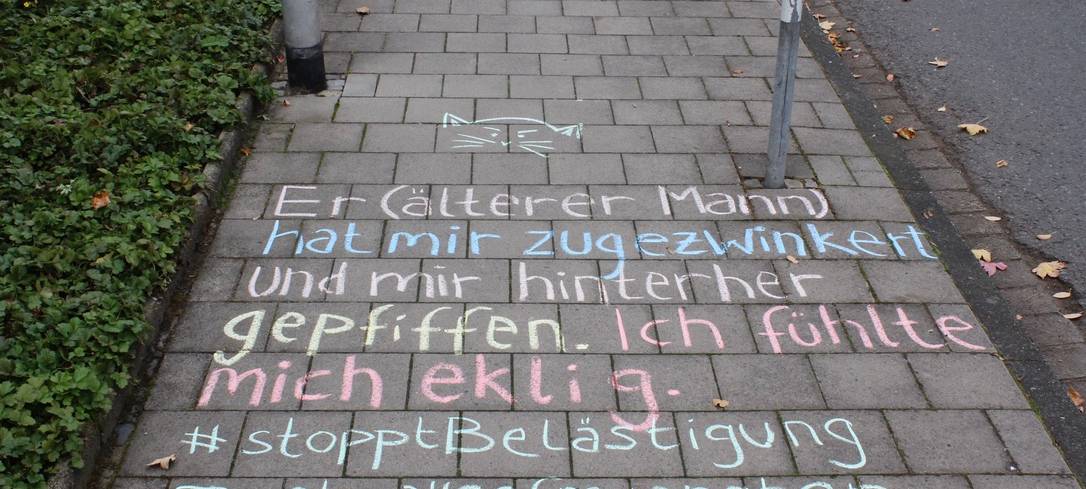 Er (älterer Mann)
hat mir zugezwinkert
und mir hinterher
gepfiffen. Ich fühlte
mich eklig.
#stopptBelästigung